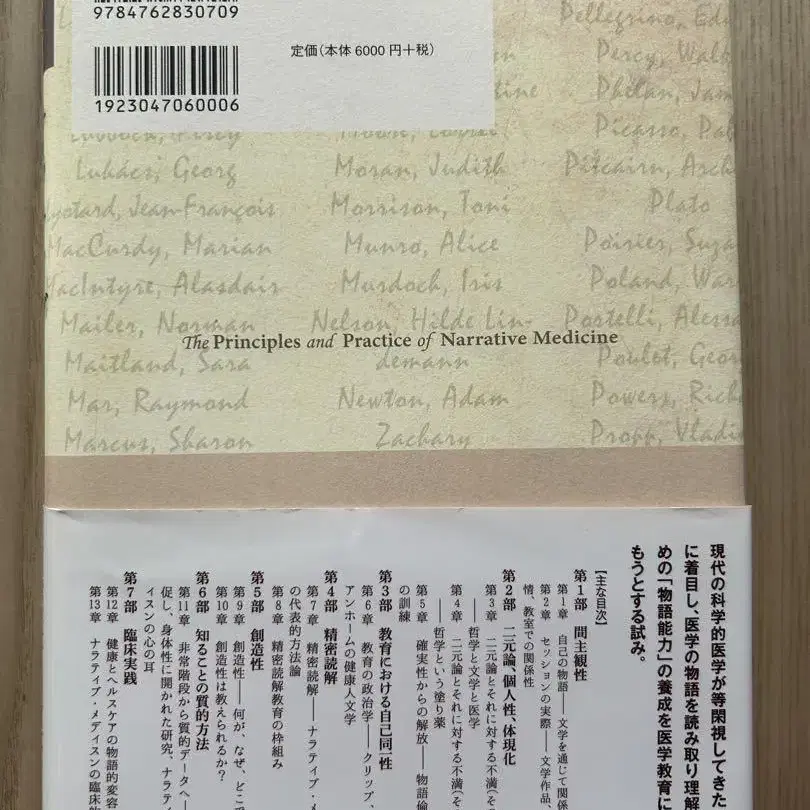 9784762830709
定価(本体6000円+税)
1923047060006
Pellegrino,
Percy,
Phelan,
Picasso,
Lukács, Georg
Moran, Judith
Pitcairn,
Jean-François
Morrison, Toni
Plato
MacCurdy, Marian
Munro, Alice
Poirier,
MacIntyre, Alasdair
Murdoch, Iris
Poland,
Mailer, Norman
Nelson, Hilde Lin-
demann
Portelli,
The Principles and Practice of Narrative Medicine
Maitland, Sara
Poulet,
Mar, Raymond
Newton, Adam
Zachary
Powers,
Marcus, Sharon
Propp,
現代の科学的医学が等閑視してきた
に着目し、医学の物語を読み取り理解
めの「物語能力」の養成を医学教育に
もうとする試み。
【主な目次】
第1部 間主観性
第1章 自己の物語——文学を通じて関係
第2章 セッションの実際——文学作品、
情、教室での関係性
第2部 二元論、個人性、体現化
第3章 二元論とそれに対する不満(そ
——哲学と文学と医学
第4章 二元論とそれに対する不満(そ
——哲学という塗り薬
第5章 確実性からの解放——物語倫
の訓練
第3部 教育における自己同一性
第6章 教育の政治学——クリップ、
アンホームの健康人文学
第4部 精密読解
第7章 精密読解——ナラティブ・メ
の代表的方法論
第8章 精密読解教育の枠組み
第5部 創造性
第9章 創造性——何が、なぜ、どこで
第10章 創造性は教えられるか?
第6部 知ることの質的方法
第11章 非常階段から質的データへ—
促し、身体性に開かれた研究、ナラティ
ィスンの心の耳
第7部 臨床実践
第12章 健康とヘルスケアの物語的変容
第13章 ナラティブ・メディスンの臨床